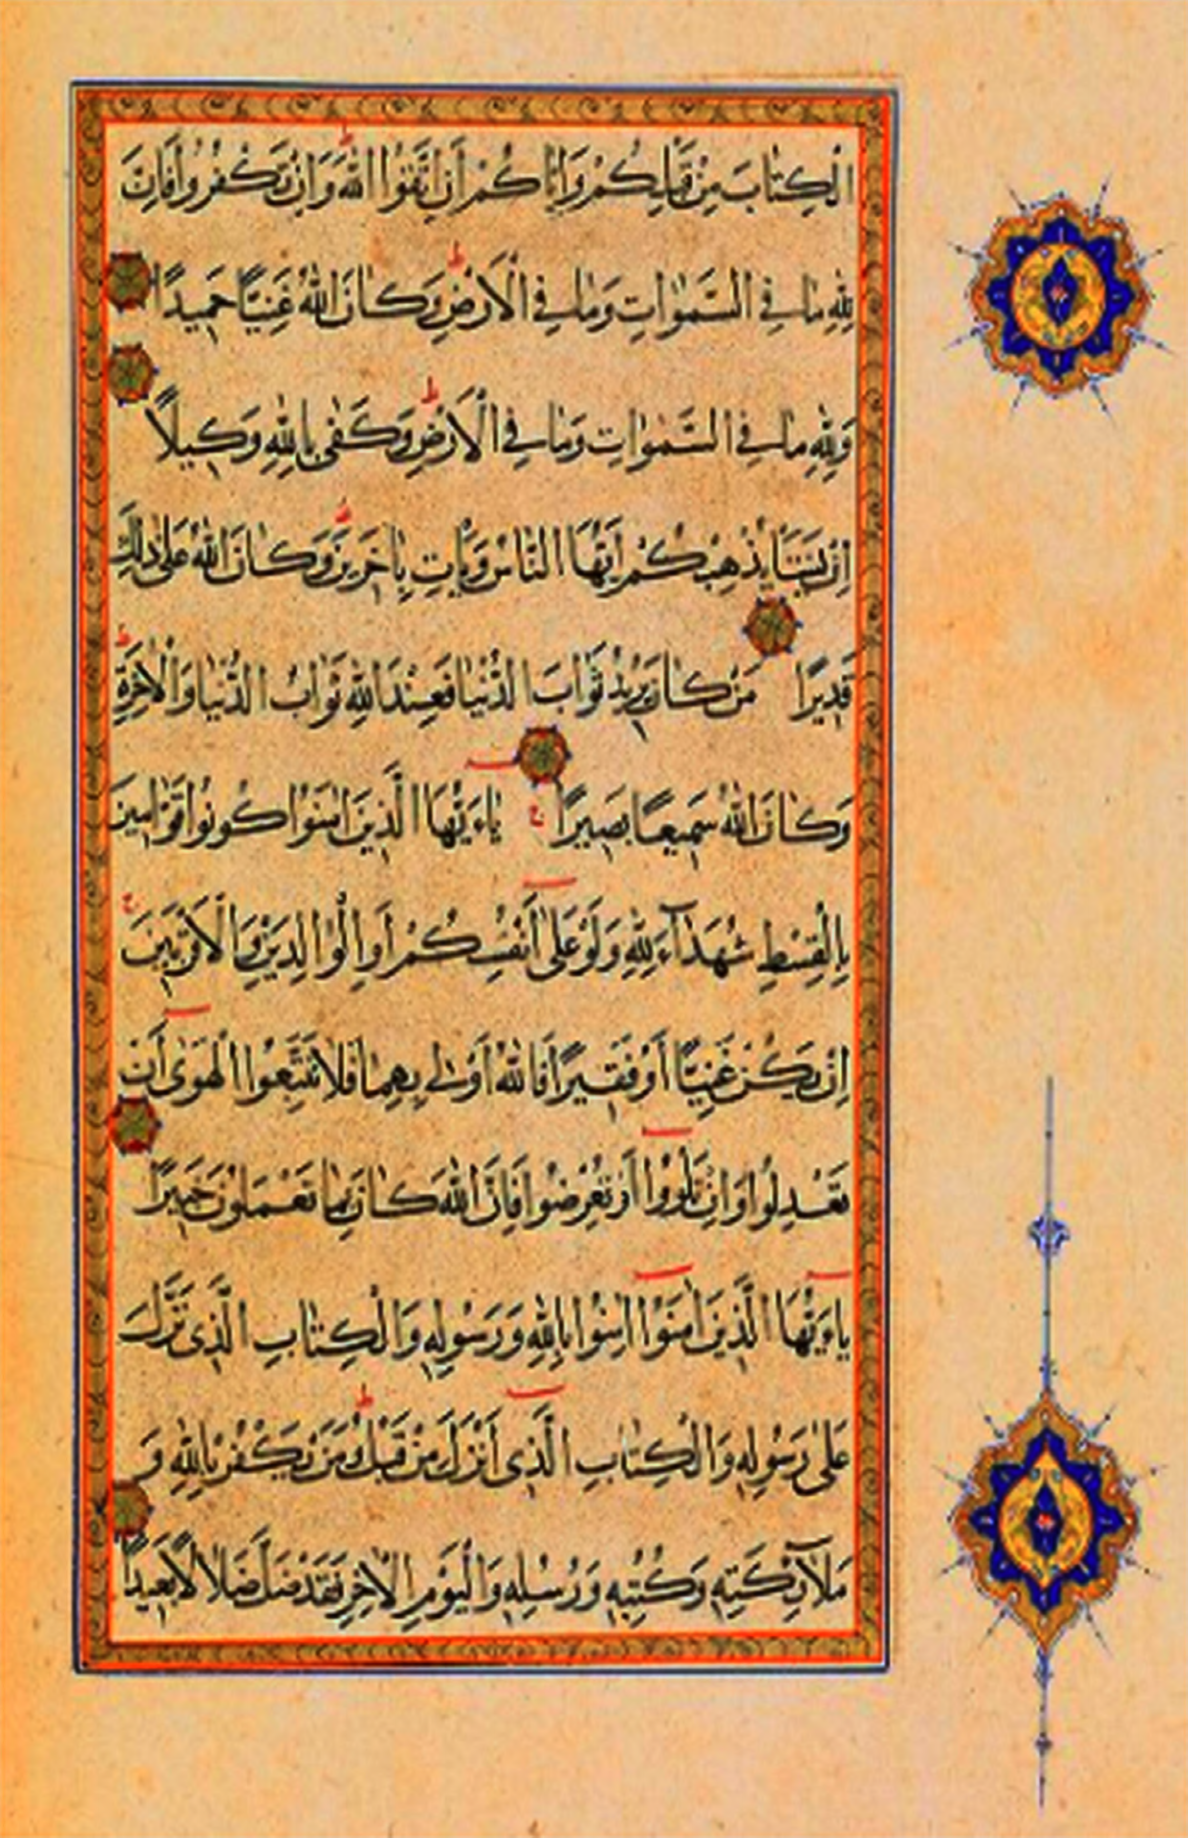 الْكِتَابَ مِنْ قَبْلِكُمْ وَاِيَّاكُمْ أَنِ اتَّقُوا اللّٰهَ وَاِنْ تَكْفُرُوا فَاِنَّ
لِلّٰهِ مَا فِي السَّمٰوَاتِ وَمَا فِي الْاَرْضِ وَكَانَ اللّٰهُ غَنِيًّا حَمِيدًا
وَلِلّٰهِ مَا فِي السَّمٰوَاتِ وَمَا فِي الْاَرْضِ وَكَفٰى بِاللّٰهِ وَكِيلًا
اِنْ يَشَأْ يُذْهِبْكُمْ اَيُّهَا النَّاسُ وَيَأْتِ بِاٰخَرِينَ وَكَانَ اللّٰهُ عَلٰى ذٰلِكَ
قَدِيرًا مَنْ كَانَ يُرِيدُ ثَوَابَ الدُّنْيَا فَعِنْدَ اللّٰهِ ثَوَابُ الدُّنْيَا وَالْاٰخِرَةِ
وَكَانَ اللّٰهُ سَمِيعًا بَصِيرًا يَاءَيُّهَا الَّذِينَ اٰمَنُوا كُونُوا قَوَّامِينَ
بِالْقِسْطِ شُهَدَآءَ لِلّٰهِ وَلَوْ عَلٰى اَنْفُسِكُمْ اَوِ الْوَالِدَيْنِ وَالْاَقْرَبِينَ
اِنْ يَكُنْ غَنِيًّا اَوْ فَقِيرًا فَاللّٰهُ اَوْلٰى بِهِمَا فَلَا تَتَّبِعُوا الْهَوٰى اَنْ
تَعْدِلُوا وَاِنْ تَلْوُوا اَوْ تُعْرِضُوا فَاِنَّ اللّٰهَ كَانَ بِمَا تَعْمَلُونَ خَبِيرًا
يَاءَيُّهَا الَّذِينَ اٰمَنُوا اٰمِنُوا بِاللّٰهِ وَرَسُولِهِ وَالْكِتَابِ الَّذِي نَزَّلَ
عَلٰى رَسُولِهِ وَالْكِتَابِ الَّذِي اَنْزَلَ مِنْ قَبْلُ وَمَنْ يَكْفُرْ بِاللّٰهِ وَ
مَلَآئِكَتِهِ وَكُتُبِهِ وَرُسُلِهِ وَالْيَوْمِ الْاٰخِرِ فَقَدْ ضَلَّ ضَلَالًا بَعِيدًا